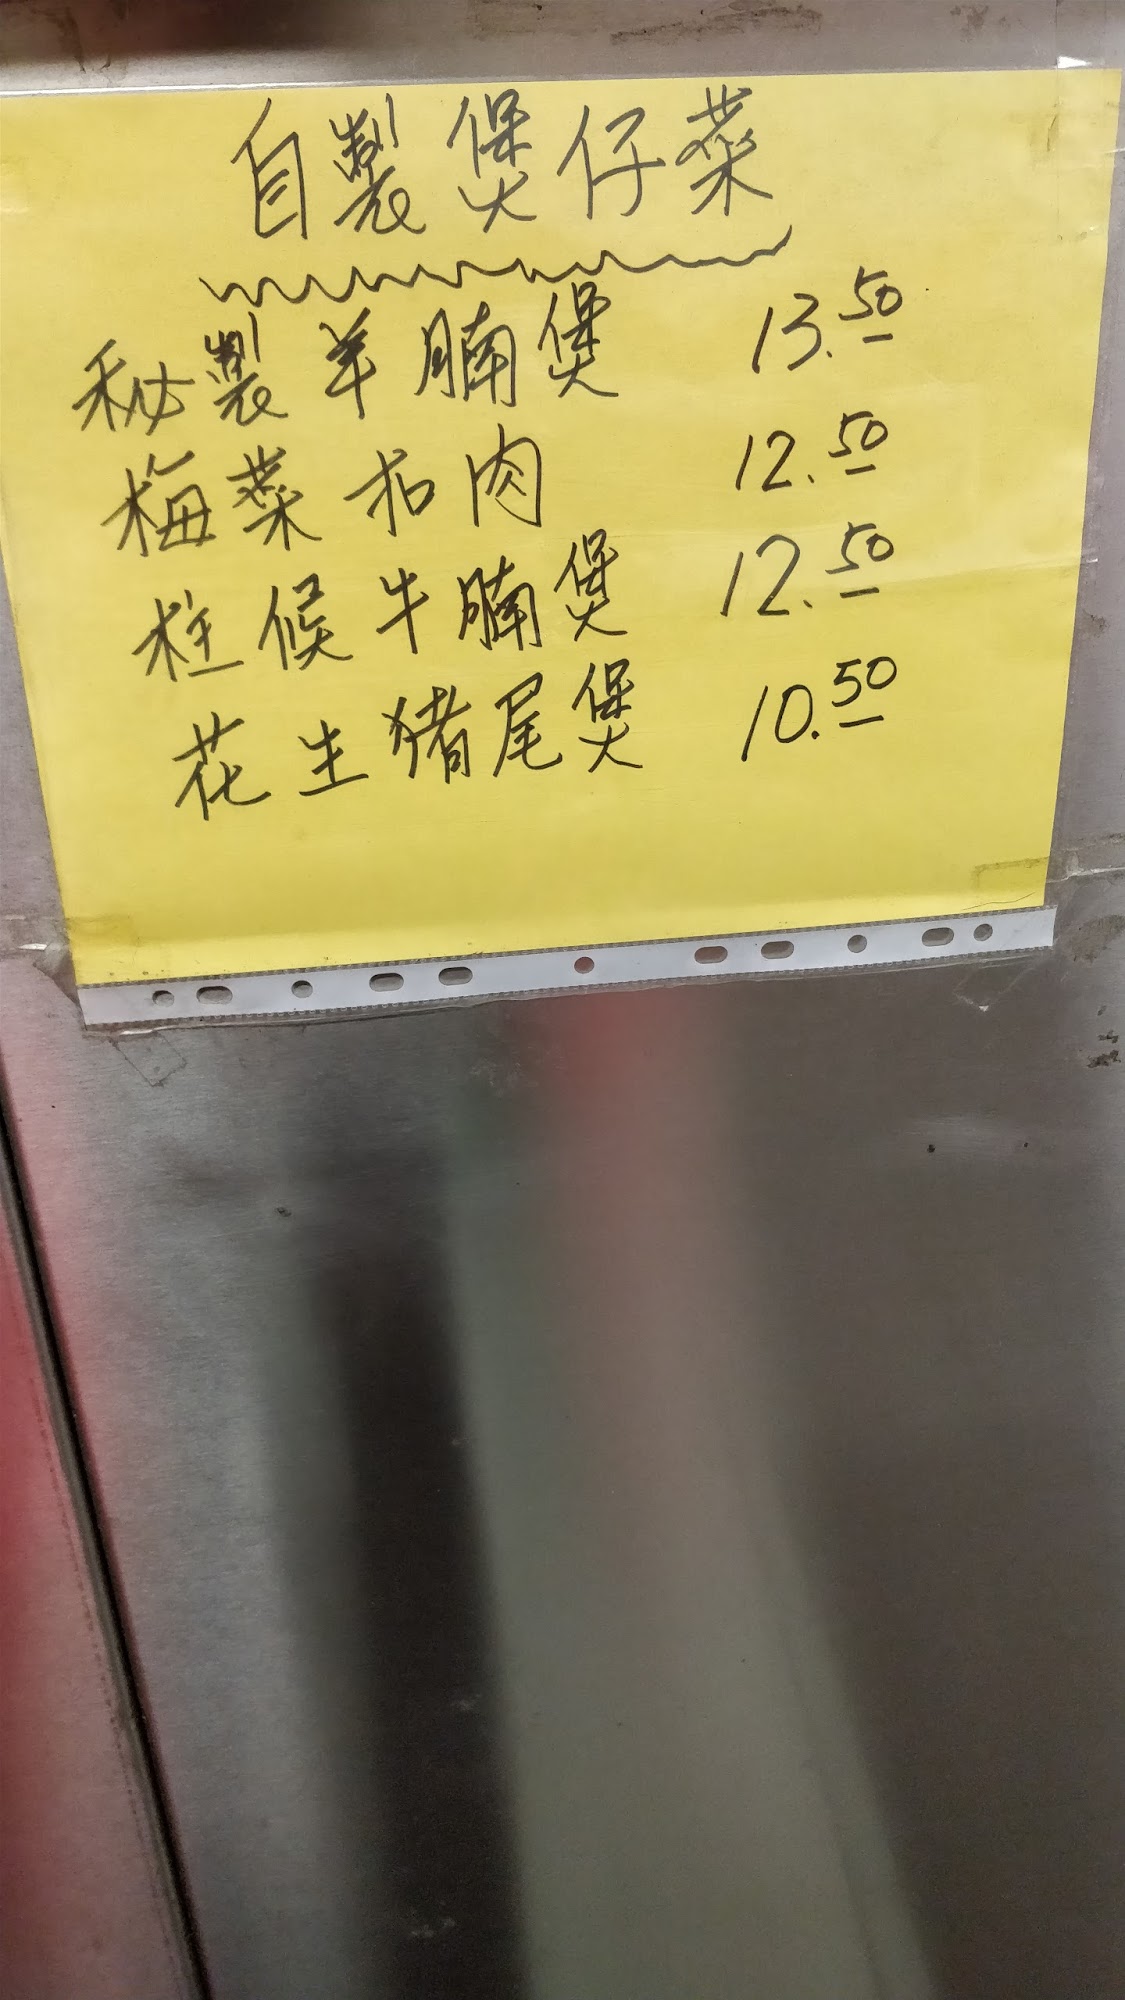 自製煲仔菜
秘製羊腩煲 13.50
梅菜扣肉 12.50
柱候牛腩煲 12.50
花生猪尾煲 10.50